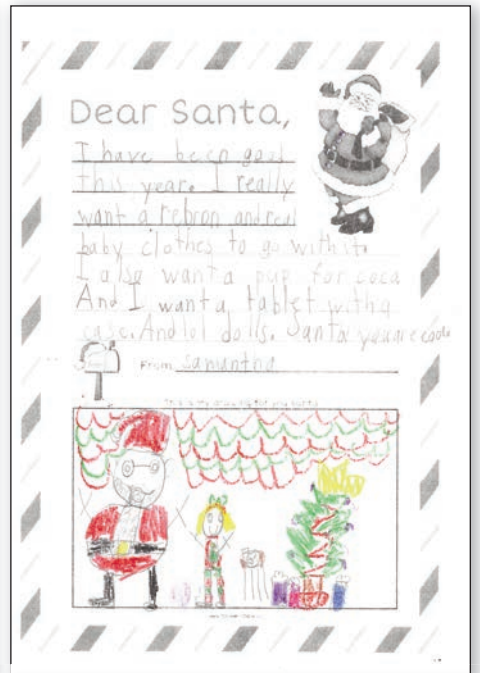 Dear Santa,
I have been good
this year. I really
want a rebron and real
baby clothes to go with it.
I also want a pup for coca
And I want a tablet with a
case. And lol dolls. Santa you are cool
From Samantha
This is my drawing for you Santa